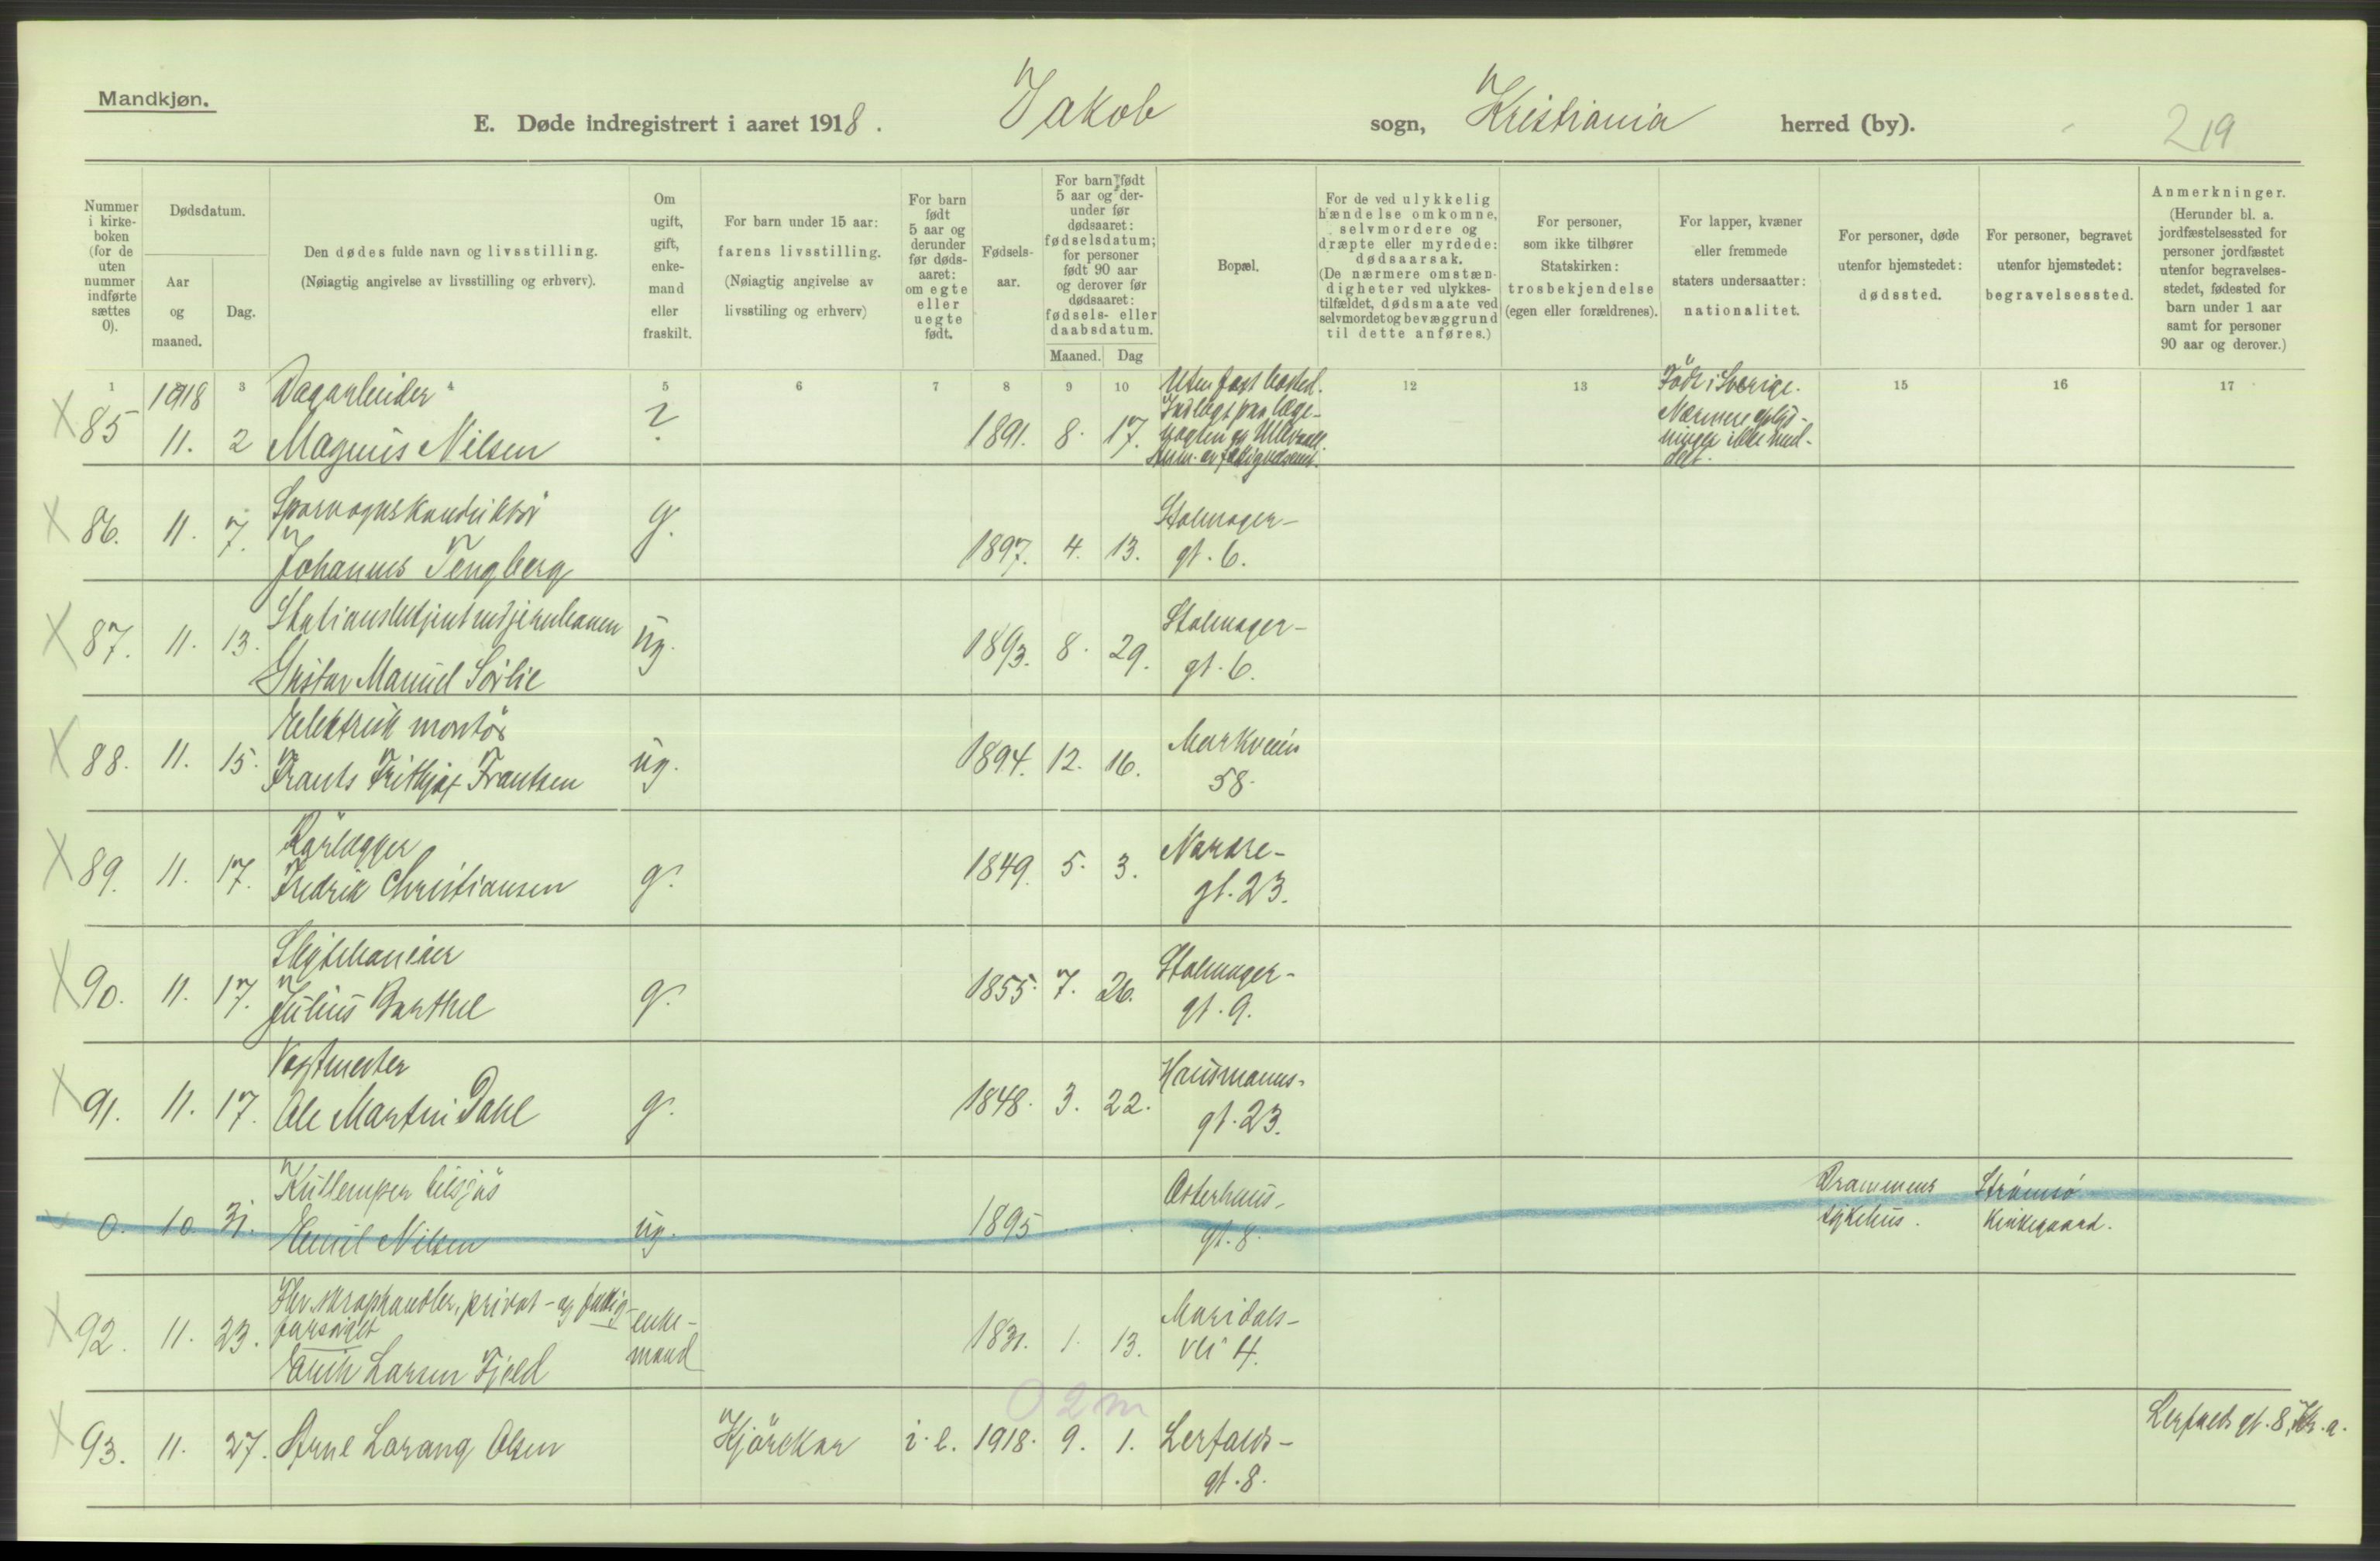 Mandkjøn.
E. Døde indregistrert i aaret 1918. Jakob sogn, Kristiania herred (by). 219
Nummer i kirkeboken (for de uten nummer indførte sættes 0).
Dødsdatum.
Aar og maaned.
Dag.
Den dødes fulde navn og livsstilling.
(Nøiagtig angivelse av livsstilling og erhverv).
Om ugift, gift, enkemand eller fraskilt.
For barn under 15 aar:
farens livsstilling.
(Nøiagtig angivelse av livsstiling og erhverv)
For barn født 5 aar og derunder før dødsaaret: om egte eller uegte født.
Fødselsaar.
For barn født 5 aar og derunder før dødsaaret: fødselsdatum; for personer født 90 aar og derover før dødsaaret: fødsels- eller daabsdatum.
Maaned. Dag
Bopæl.
For de ved ulykkelig hændelse omkomne, selvmordere og dræpte eller myrdede: dødsaarsak.
(De nærmere omstændigheter ved ulykkestilfældet, dødsmaate ved selvmordet og bevæggrund til dette anføres.)
For personer, som ikke tilhører Statskirken: trosbekjendelse (egen eller forældrenes).
For lapper, kvæner eller fremmede staters undersaatter: nationalitet.
For personer, døde utenfor hjemstedet: dødssted.
For personer, begravet utenfor hjemstedet: begravelsessted.
Anmerkninger.
(Herunder bl. a. jordfæstelsessted for personer jordfæstet utenfor begravelsesstedet, fødested for barn under 1 aar samt for personer 90 aar og derover.)
1 3 4 5 6 7 8 9 10 12 13 15 16 17
X 85 1918 11. 2 Dagarbeider
Magnus Nilsen ? 1891. 8. 17. Uten fast bosted.
Indlagt paa lægevagten og Ullevaal
Født i Sverige.
Nærmere oplysninger ikke meddelt.
X 86. 11. 7. Sporvognskonduktør
Johannes Tengberg g. 1897. 4. 13. Stolmagergt. 6.
X 87. 11. 13. Stationsbetjent ved jernbanen
Gustav Manuel Sörlie ug. 1893. 8. 29. Stolmagergt. 6.
X 88. 11. 15. Elektrisk montör
Frants Frithjof Frantsen ug. 1894. 12. 16. Markveien 58.
X 89. 11. 17. Rørlægger
Fredrik Christiansen g. 1849. 5. 3. Nordregt. 23.
X 90. 11. 17. Skytebaneeier
Julius Barthel g. 1855. 7. 26. Stolmagergt. 9.
X 91. 11. 17. Vagtmester
Ole Martin Dahl g. 1848. 3. 22. Hausmannsgt. 23.
0. 10 31. Kullemper tilsjös
Emil Nilsen ug. 1895 Osterhausgt. 8. Drammens sykehus. Strömsö Kirkegaard.
X 92. 11. 23. Fhv. skraphandler, privat- og fattigforsörget
Erik Larsen Fjeld enkemand 1831. 1. 13. Maridalsvei 4.
0 2 m
X 93. 11. 27. Arne Lorang Olsen Kjörekar i. e. 1918. 9. 1. Lerfaldsgt. 8. Lerfaldsgt. 8, Kr. a.